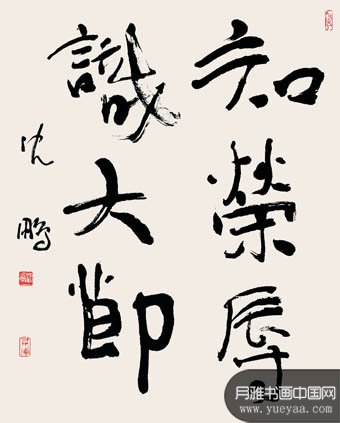 知榮辱
識大節
沈鵬
月雅书画中国网
www.yueyaa.com